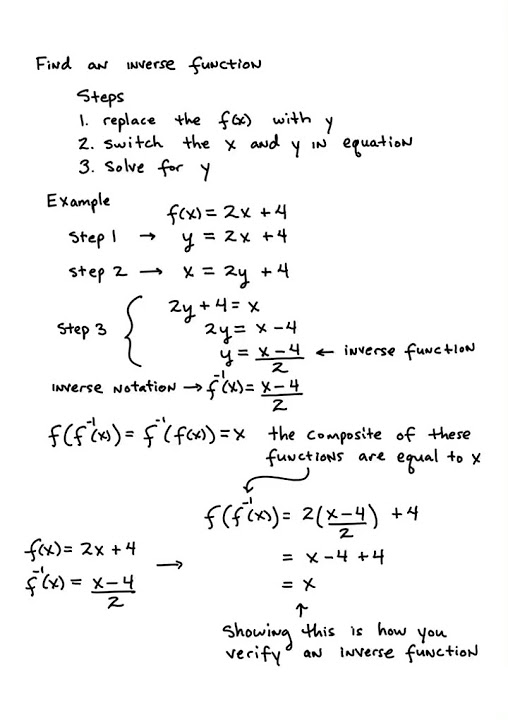 Find an inverse function
Steps
1. replace the f(x) with y
2. switch the x and y in equation
3. solve for y
Example
f(x) = 2x + 4
Step 1 → y = 2x + 4
step 2 → x = 2y + 4
2y + 4 = x
Step 3 { 2y = x - 4
y = (x - 4)/2 ← inverse function
inverse notation → f⁻¹(x) = (x - 4)/2
f(f⁻¹(x)) = f⁻¹(f(x)) = x the composite of these
functions are equal to x
f(f⁻¹(x)) = 2((x - 4)/2) + 4
f(x) = 2x + 4 → = x - 4 + 4
f⁻¹(x) = (x - 4)/2 = x
↑
Showing this is how you
verify an inverse function